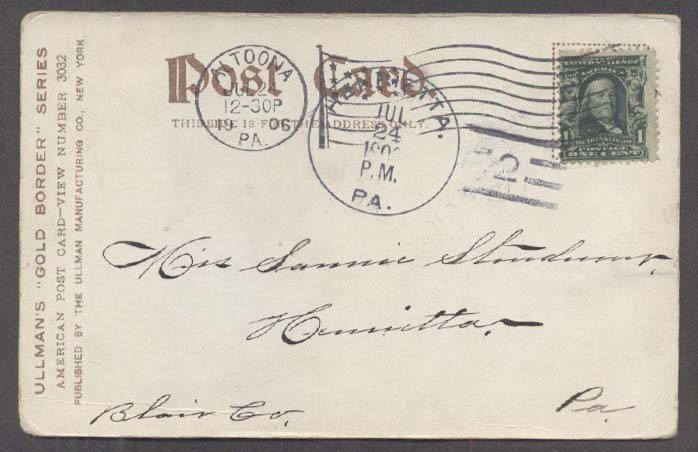 ULLMAN'S "GOLD BORDER" SERIES
AMERICAN POST CARD—VIEW NUMBER 3032
PUBLISHED BY THE ULLMAN MANUFACTURING CO., NEW YORK
Post Card
THIS SIDE IS FOR THE ADDRESS ONLY.
ALTOONA
JUL 2
12-30P
19 06
PA.
HENRIETTA.
JUL
24
P.M.
PA.
2
1 1
ONE CENT
Miss Sannie
Henrietta
Blair Co. Pa.